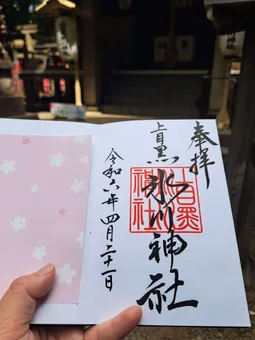 奉拝
上目黒氷川神社
上目黒
神社
令和六年四月二十一日